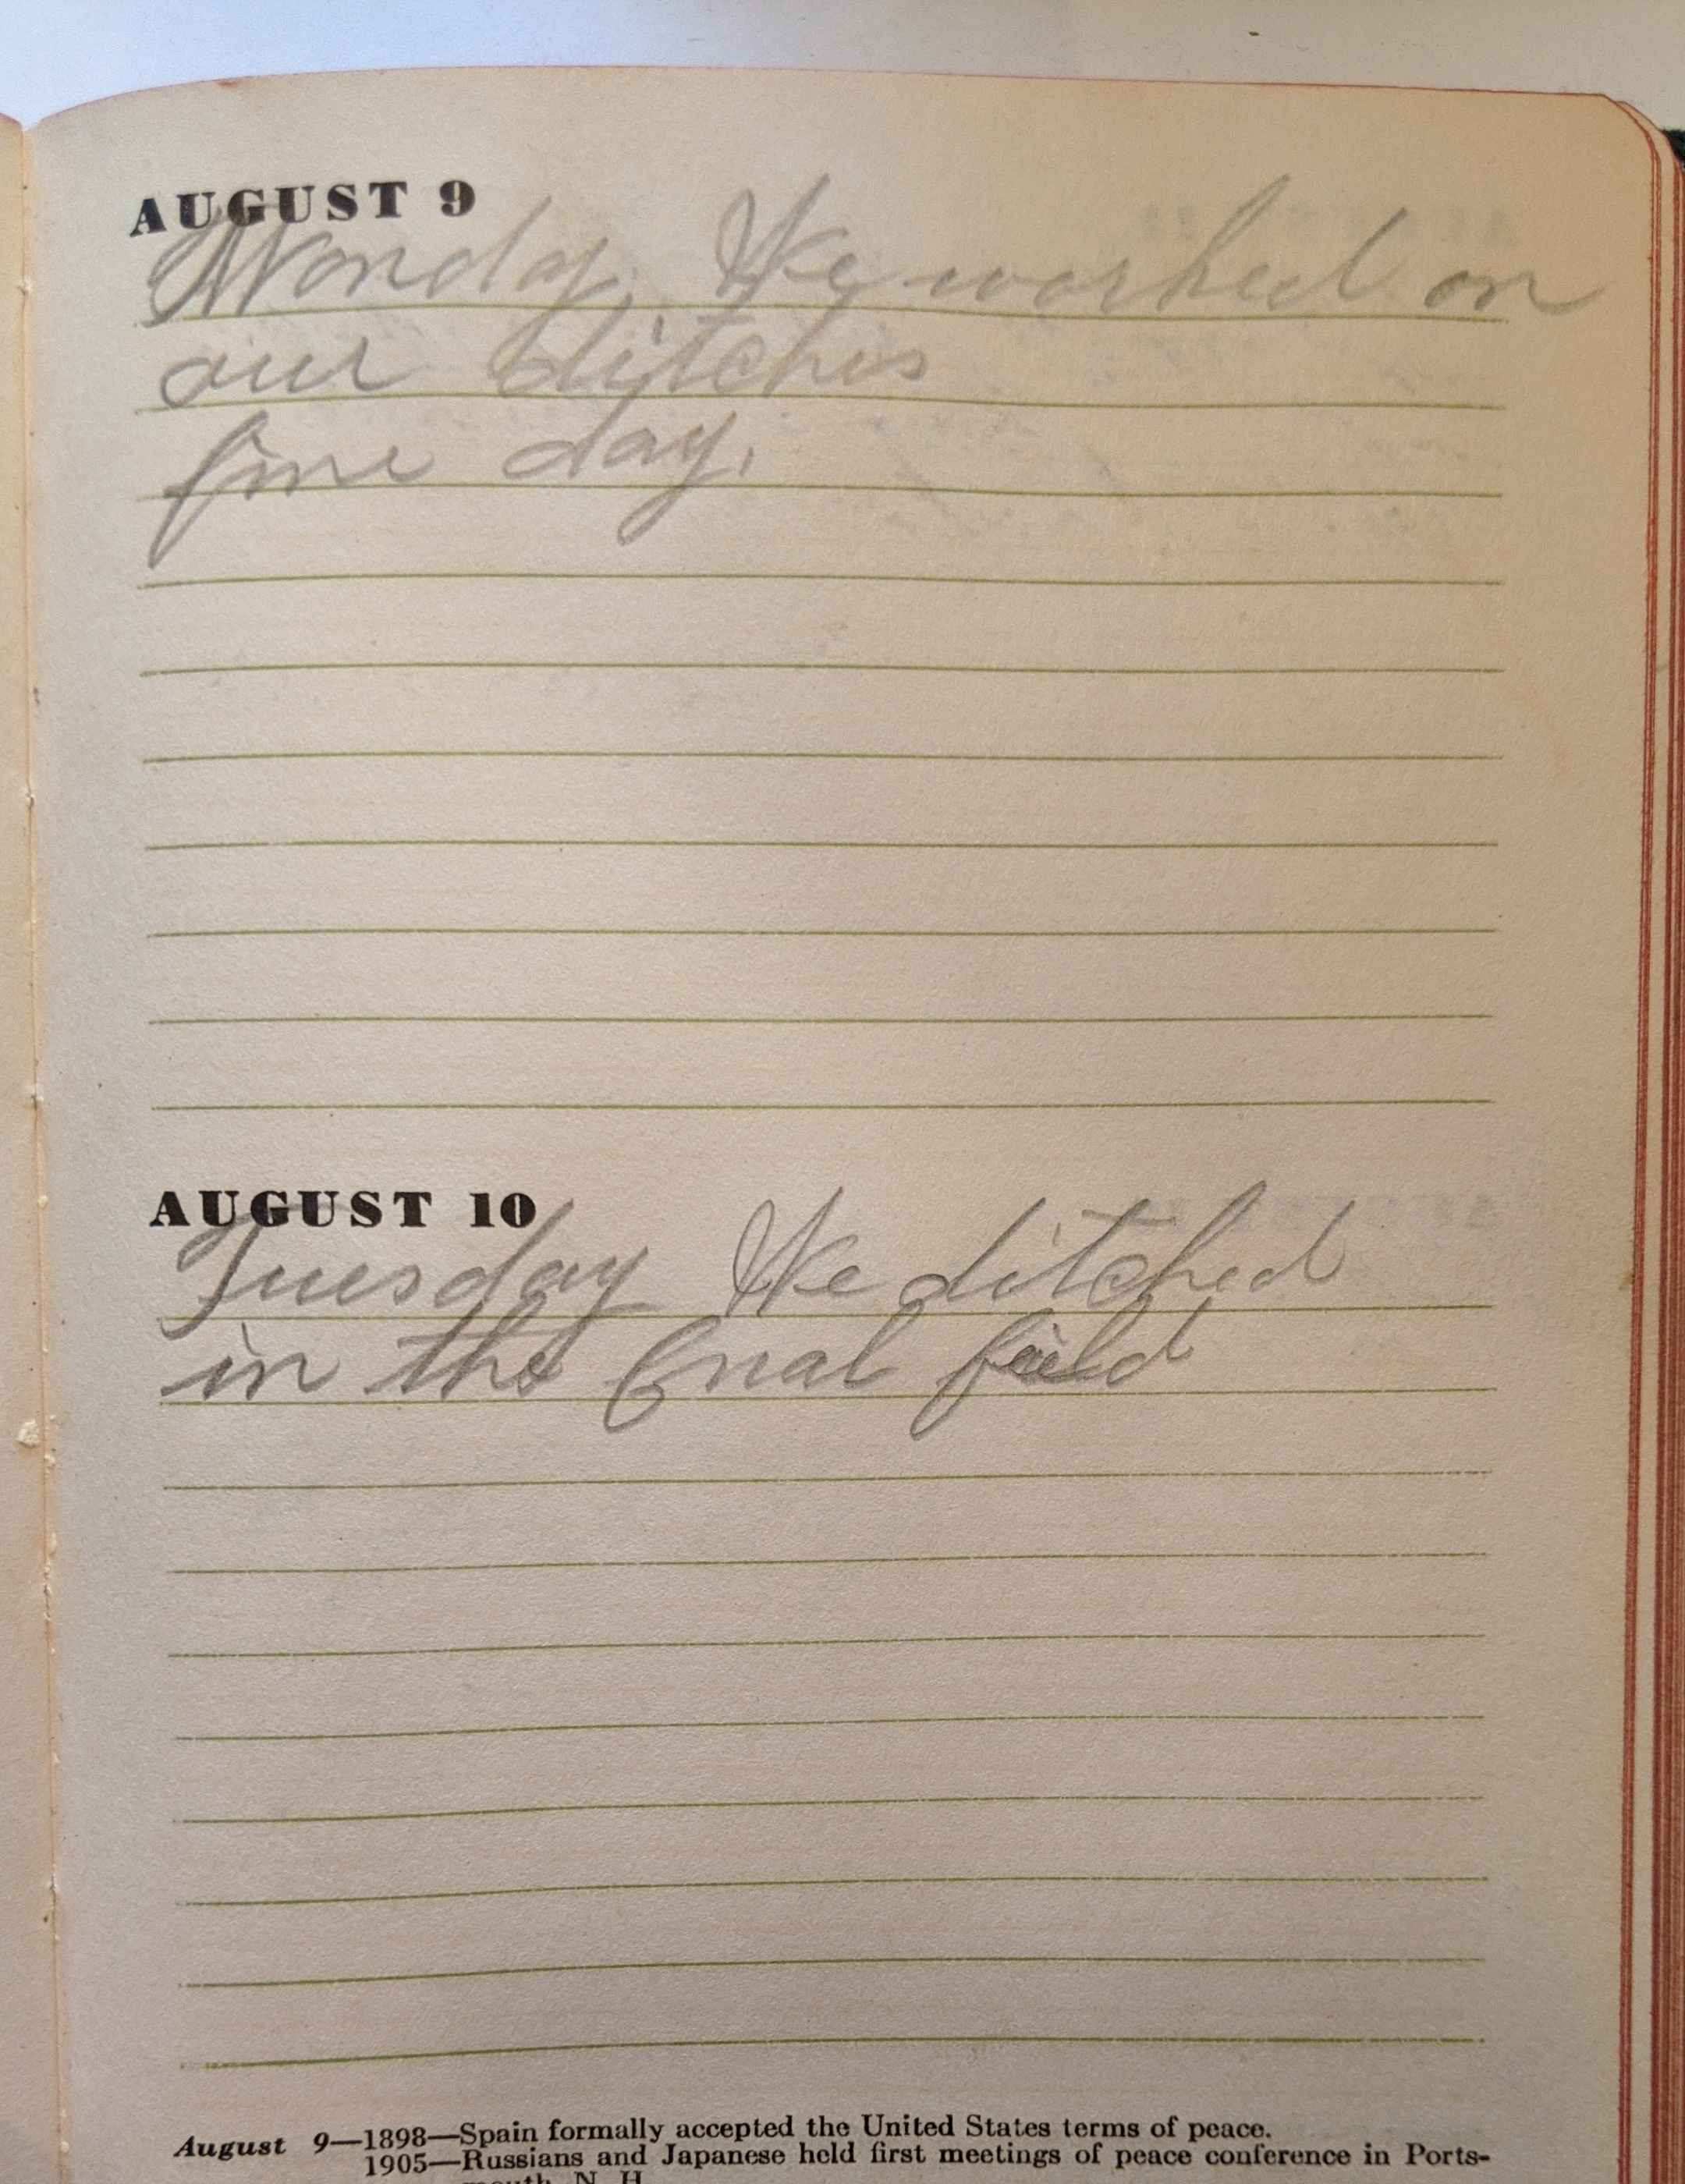 AUGUST 9
Monday. We worked on
our ditches
fine day.
AUGUST 10
Tuesday We ditched
in the field
August 9—1898—Spain formally accepted the United States terms of peace.
1905—Russians and Japanese held first meetings of peace conference in Ports-
mouth, N. H.